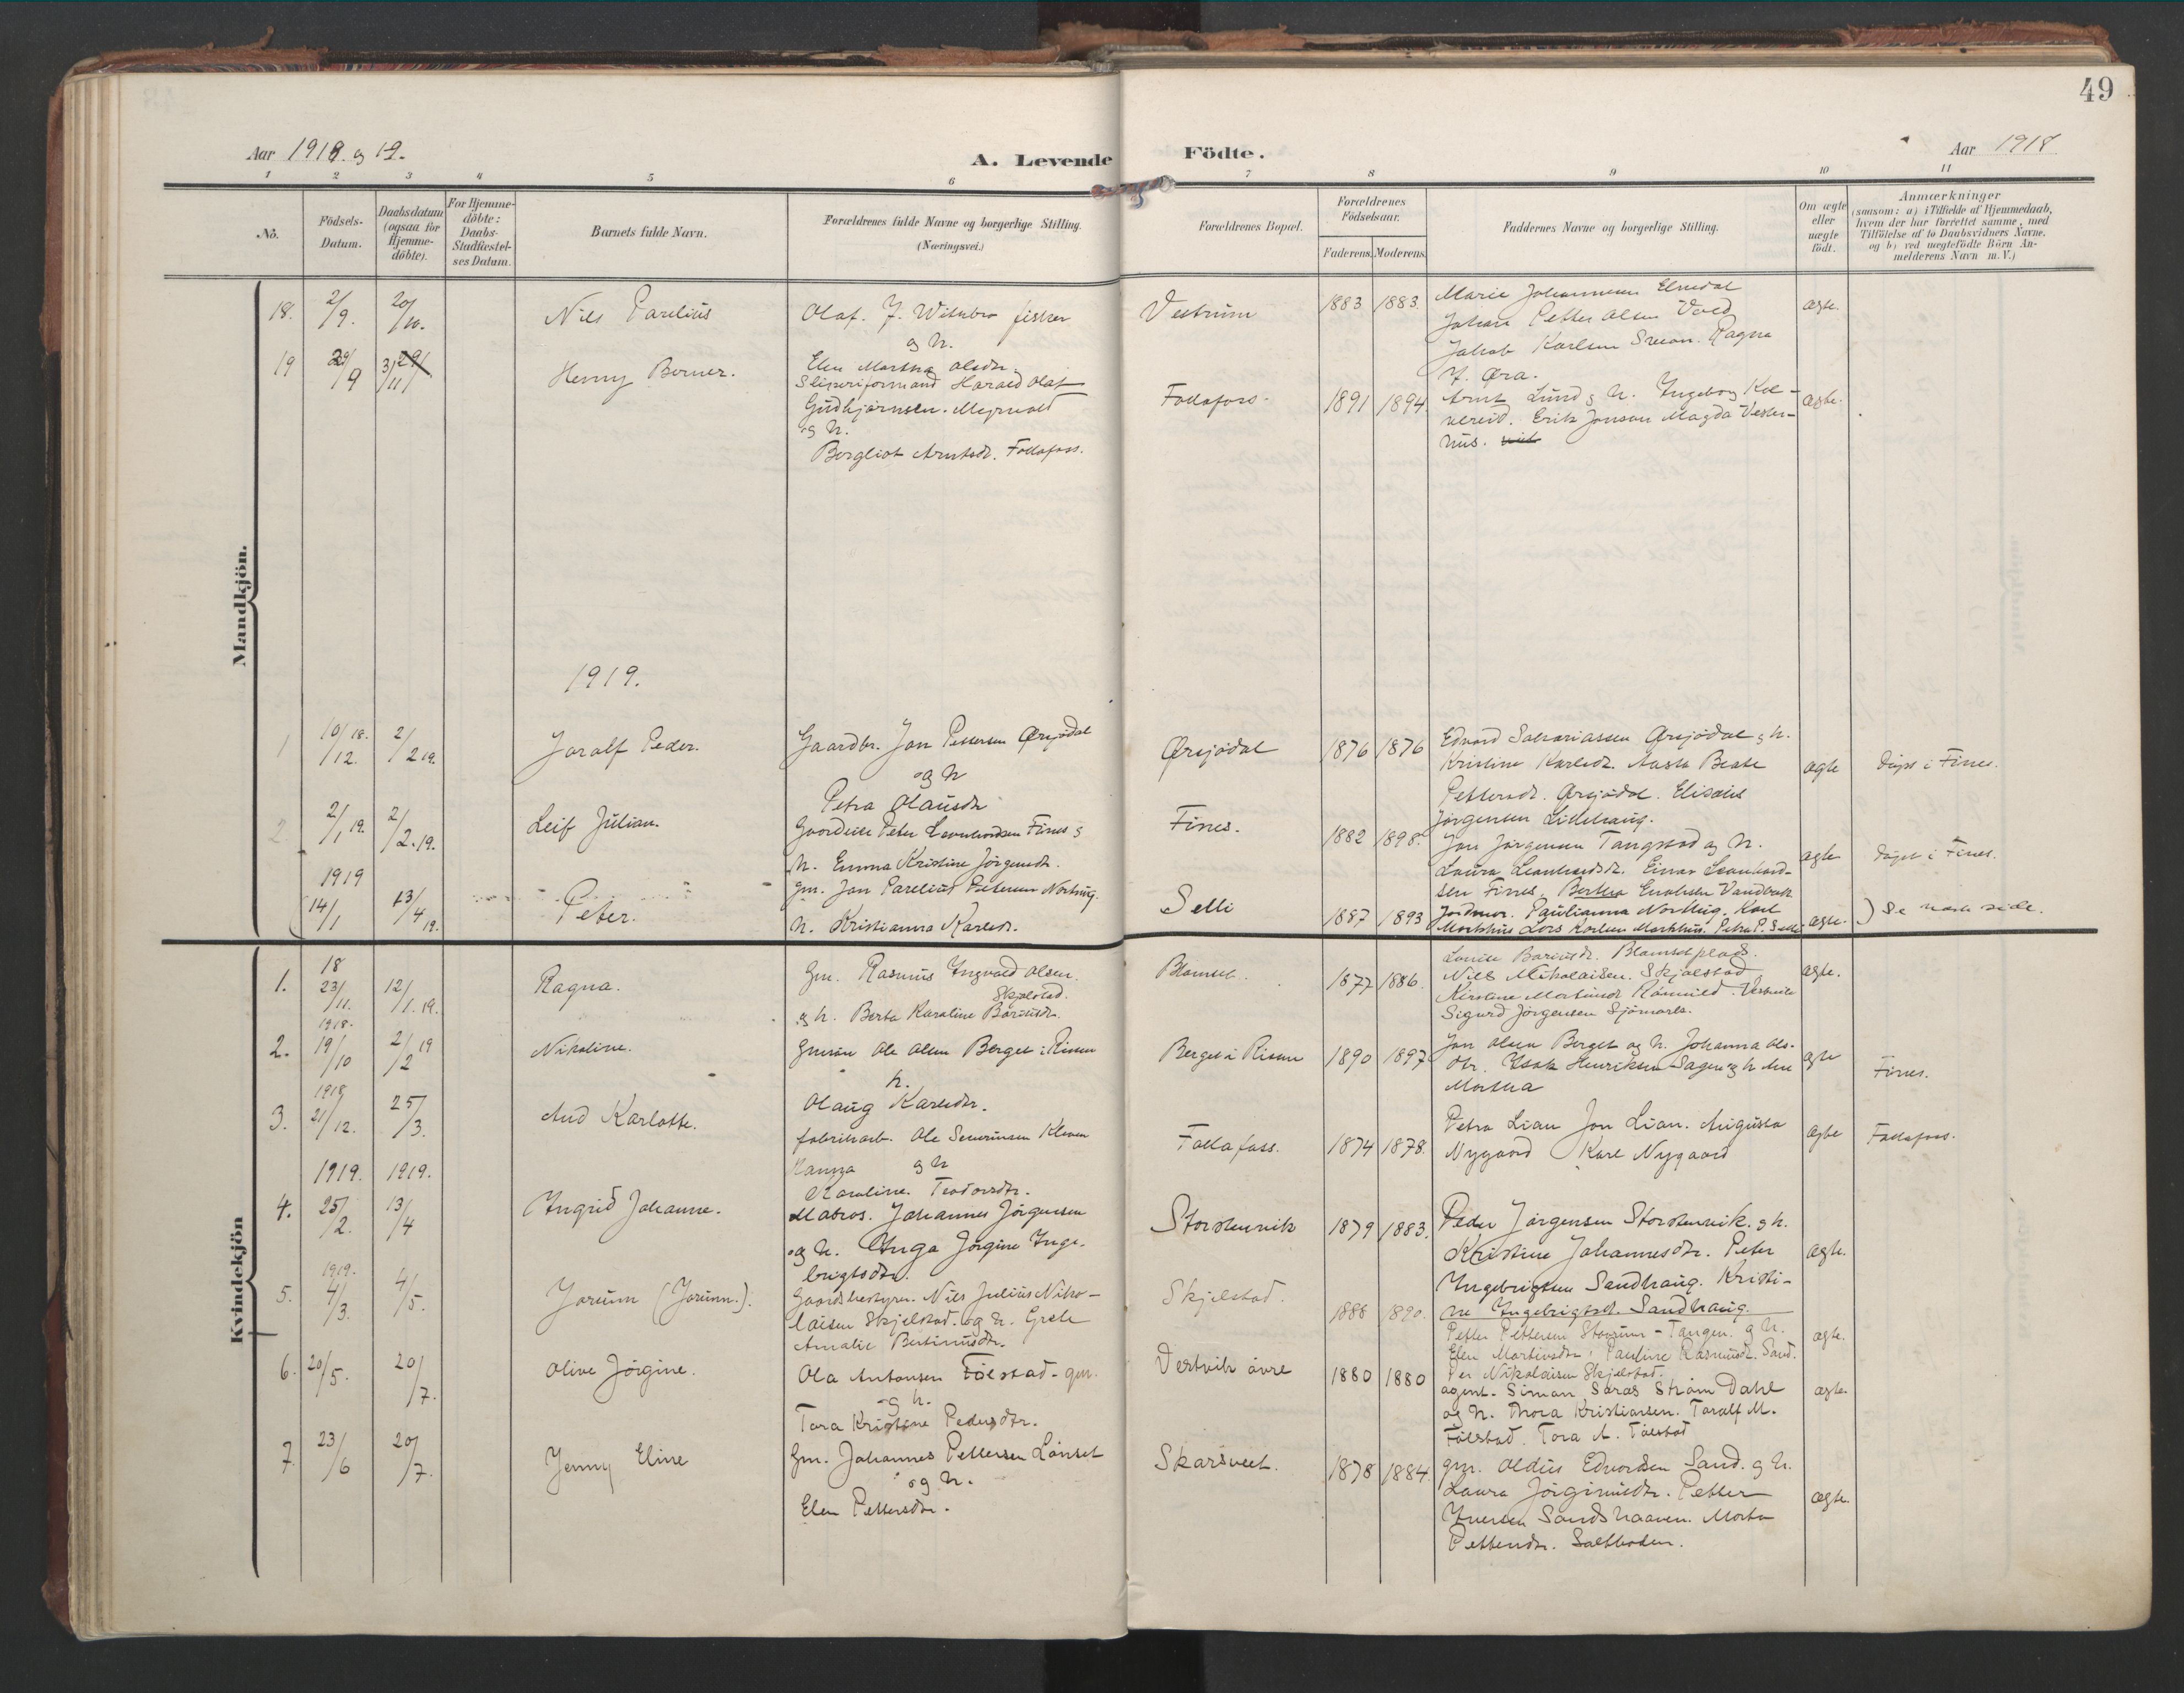 49
Aar 1918. og 19.
A. Levende Födte.
Aar 1918
1 2 3 4 5 6 7 8 9 10 11
No.
Födsels-Datum.
Daabsdatum (ogsaa for Hjemme-döbte).
For Hjemme-döbte: Daabs-Stadfæstel-ses Datum.
Barnets fulde Navn.
Forældrenes fulde Navne og borgerlige Stilling. (Næringsvei.)
Forældrenes Bopæl.
Forældrenes Födselsaar.
Faderens. Moderens.
Faddernes Navne og borgerlige Stilling.
Om ægte eller uægte födt.
Anmærkninger
(saasom: a) i Tilfælde af Hjemmedaab,
hvem der har forrettet samme, med
Tilföielse af to Daabsvidners Navne,
og b) ved uægtefödte Börn An-
melderens Navn m. V.)
Mandkjön.
18. 2/9. 20/10. Nils Parelius
Olaf. J. Witubro fisker
og h.
Elen Martha Olsdr.
Vestrum 1883 1883.
Marie Johannesen Elvedal
Johan Petter Olsen Vold
Jakob Karlsen Ragna
J. Øra.
ægte.
19 29/9 3/11 Henny Berner.
Sliperiformand Harald Olaf
Gudbjørnsen.
og h.
Bergliot Arntsdr. Follafoss.
Follafoss. 1891 1894.
Arnt Lund og h. Ingeborg Kol-
vereid. Erik Jonson Magda Vester-
hus.
ægte.
1919.
1 10/12. 18. 2/2 19. Joralf Peder.
Gaardbr. Jon Pettersen Ørsjødal
og h
Petra Olausdr
Ørsjødal 1876 1876
Edvard Sakariassen Ørsjødal og h.
Kristine Karlsdr. Aasta Beate
Pettersdr. Ørsjødal. Elisabet
Jørgensen Lillehaug.
ægte
døpt i Finnes.
2 2/1 19. 2/2. 19. Leif Julian.
Gaardeier Peter Leonhardsen Finnes og
h. Emma Kristine Jørgensdr.
Finnes. 1882 1898.
Jon Jørgensen Tangstad og h.
Laura Leonhardsdr. Einar Leonhard-
sen Finnes. Bertha Enoksen Vandbak
ægte
døpt i Finnes.
1919
14/1 13/4 19. Peter.
gm. Jon Parelius Petersen Nortug.
h. Kristianna Karlsdr.
Selli 1887 1893
Jordmor. Paulianna Nortug. Karl
Markhus Lars Karlsen Markhus. Petra P. Selli
ægte.
) Se næste side.
Kvindekjön
1. 18 23/11. 12/1. 19. Ragna.
Gm. Rasmus Ingvald Olsen.
Skjelstad.
og h. Berta Karoline Bariusdr.
Blomset. 1877 1886.
Louise Bariusdr. Blomset plads.
Nils Nikolaisen. Skjelstad
Kirstine Martinsdr Sigurd Jørgensen Sjømarks.
ægte.
2. 1918. 19/10 2/2 19 Nikoline.
Gmsøn Ole Olsen Berget i Rissen
h.
Olaug Karlsdtr.
Berget i Rissen 1890 1897
Jon Olsen Berget og h. Johanna Ols-
dtr. Isak Henriksen Sagen og h. Ane
Martha
ægte
Finnes.
3. 1918 21/12. 25/3. Aud Karlotte.
fabrikarb. Ole Severinsen Kleven
og h
Karoline. Teodorsdtr.
Follafoss. 1874 1878.
Petra Lian Jon Lian. Augusta
Nygaard Karl Nygaard
ægte
Follafoss.
1919. 1919.
4. 25/2. 13/4 Ingrid Johanne.
Matros. Johannes Jørgensen
og h. Inga Jørgine Inge-
brigtsdtr.
Storstenvik 1879 1883.
Peder Jørgensen Storstenvik. og h.
Kristine Johannesdtr. Peter
Ingebrigtsen Sandhaug. Kristi-
ne Ingebrigtsdr. Sandhaug.
ægte.
5. 1919. 4/3. 4/5. Jorum (Jorunn.).
Gaardsbestyrer. Nils Julius Niko-
laisen Skjelstad. og h. Grete
Amalie Bertinusdtr.
Skjelstad. 1888 1890.
Petter Pettersen Tangen. og h.
Elen Martinsdtr. Pauline Rasmusdr. Sand.
Per Nikolaisen Skjelstad.
ægte.
6. 20/5. 20/7. Olive Jørgine.
Ola Antonsen Følstad - gm.
og h.
Tora Kristine Pedersdtr.
Vestvik øvre 1880 1880
agent. Simon Strøm Dahl
og h. Thora Kristiansen. Toralf M.
Følstad. Tora A. Følstad
ægte.
7. 23/6 20/7. Jenny Eline
Gm. Johannes Pettersen Lønset
og h.
Elen Pettersdtr.
Skarsveet. 1878 1884.
gm. Oldus Edvardsen Sand. og h.
Laura Jørginusdtr. Petter
Iversen Sandshaaven. Marta
Pettersdtr. Saltboden.
ægte.